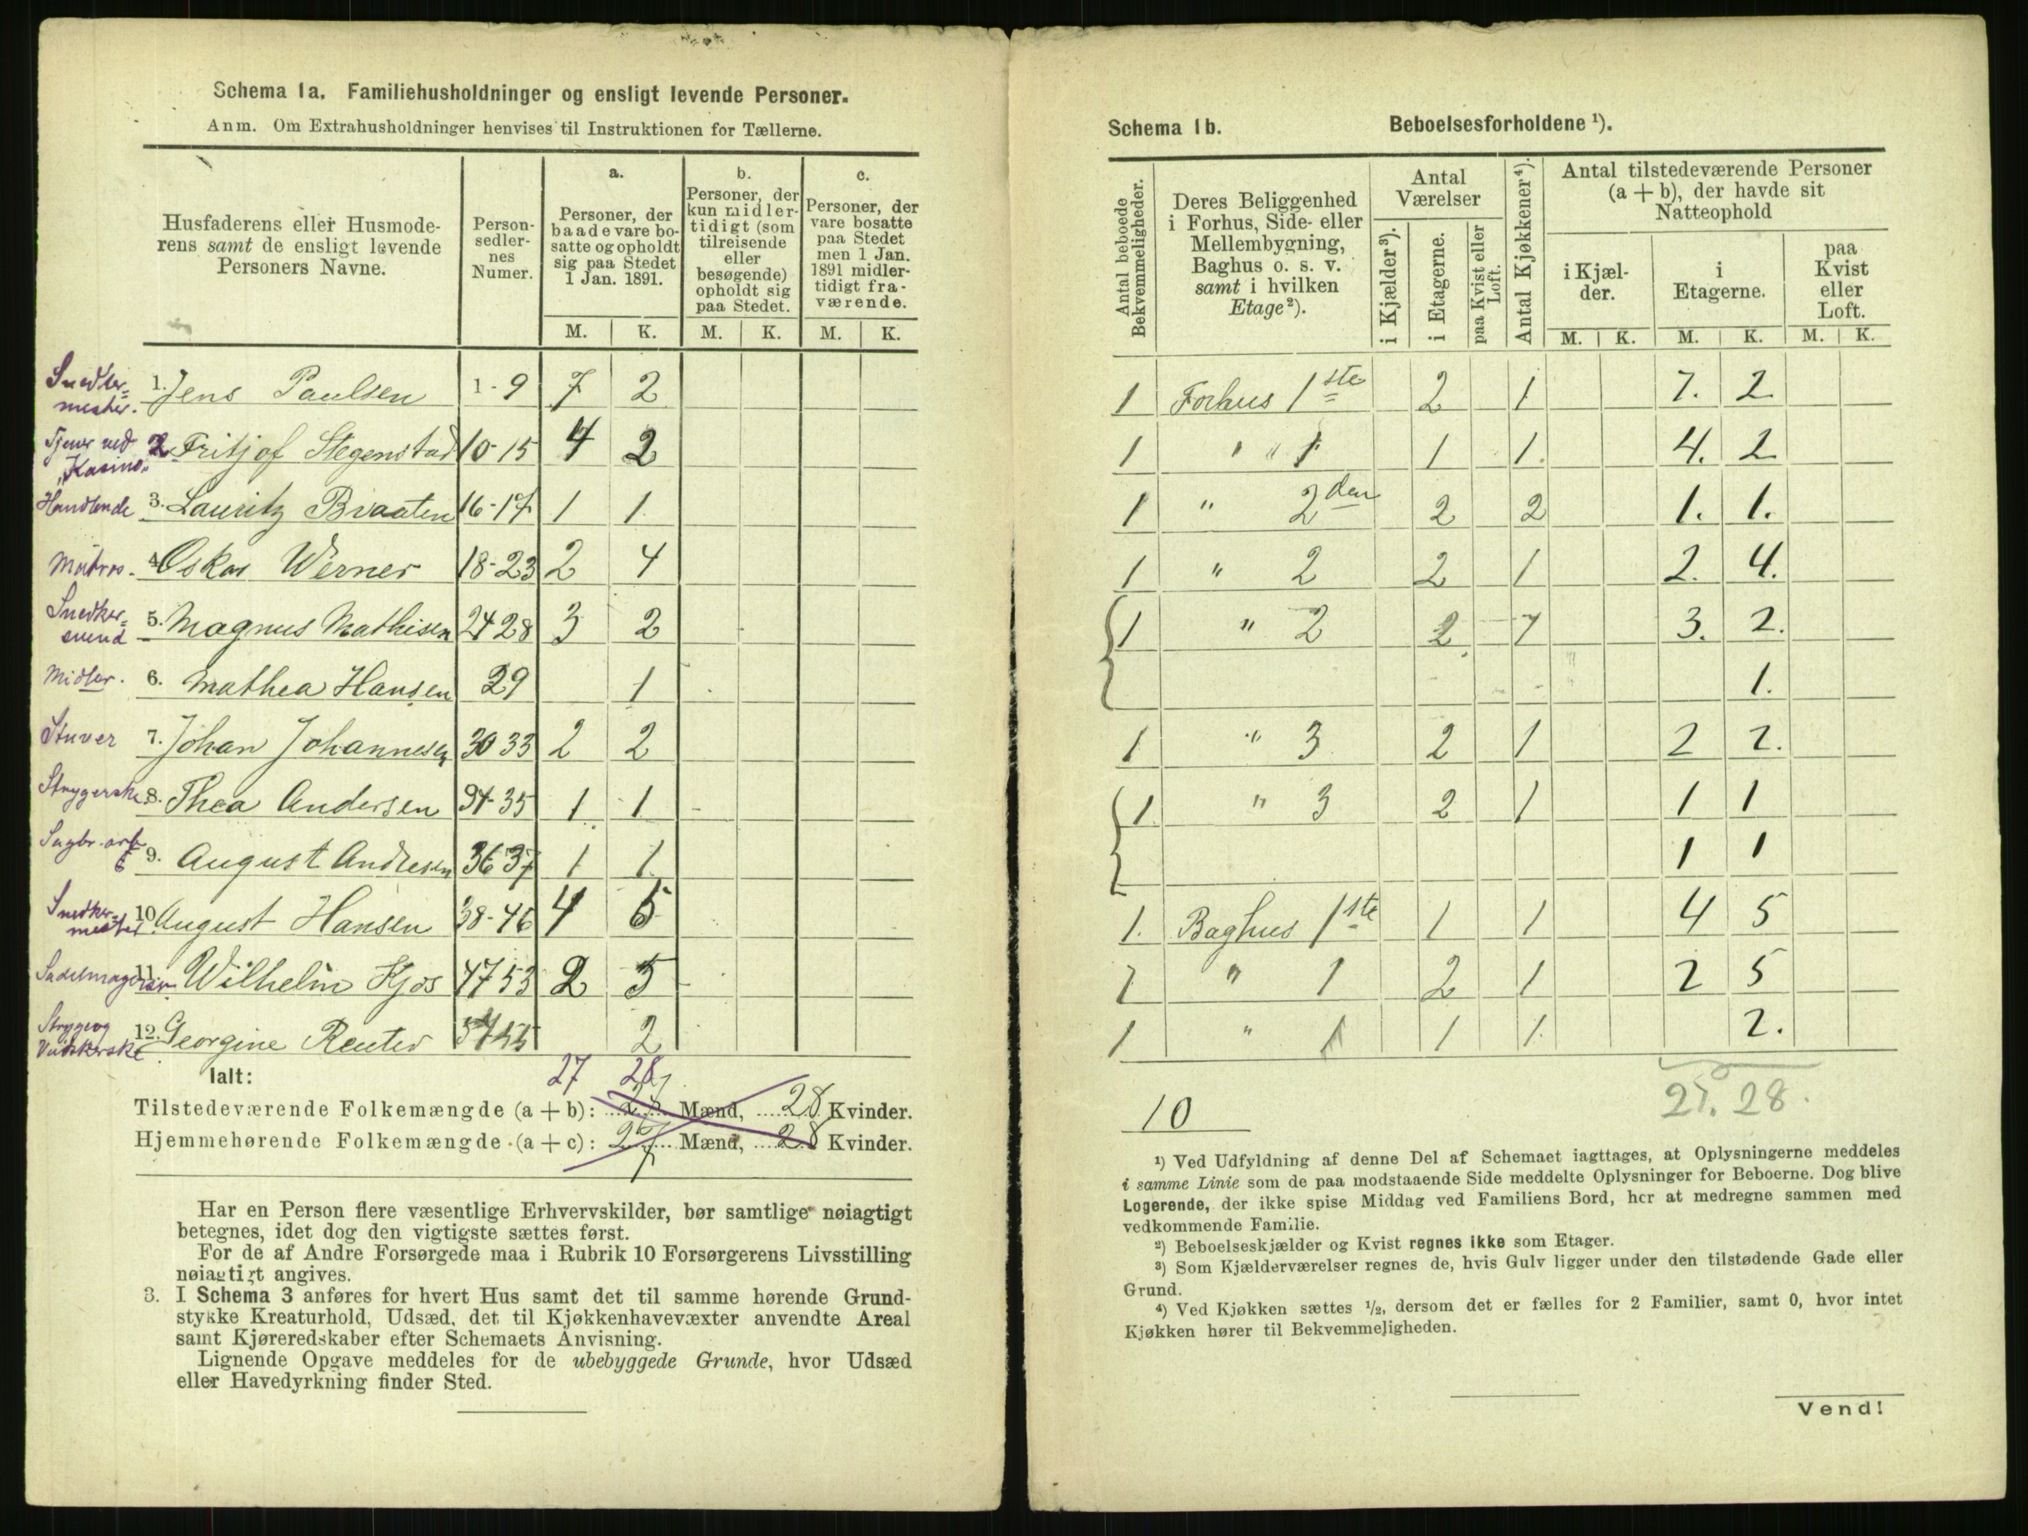 Schema 1a. Familiehusholdninger og ensligt levende Personer.
Anm. Om Extrahusholdninger henvises til Instruktionen for Tællerne.
Husfaderens eller Husmode-
rens samt de ensligt levende
Personers Navne.
Person-
sedler-
nes
Numer.
a.
Personer, der
baade vare bo-
satte og opholdt
sig paa Stedet
1 Jan. 1891.
b.
Personer, der
kun midler-
tidigt (som
tilreisende
eller
besøgende)
opholdt sig
paa Stedet.
c.
Personer, der
vare bosatte
paa Stedet
men 1 Jan.
1891 midler-
tidigt fra-
værende.
M. K. M. K. M. K.
Snedker-
mester. 1. Jens Paulsen 1-9 7 2
Tjener ved
"Kasino" 2 Fritjof Stegenstad 10-15 4 2
Handlende 3. Lauritz Braaten 16-17 1 1
Matros. 4 Oskar Werner 18-23 2 4
Snedker-
svend 5. Magnus Mathisen 24 28 3 2
Midler. 6. Mathea Hansen 29 1
Stuver 7. Johan Johannesen 30 33 2 2
Strygerske 8. Thea Andersen 34-35 1 1
Sagbr. arb 9. August Andresen 36 37 1 1
Snedker-
mester 10 August Hansen 38-46 4 5
Sadelmagersv. 11. Wilhelm Kjos 47 53 2 5
Strygeog
Vaskerske 12. Georgine Reuter 54 55 2
Ialt: 27 28
Tilstedeværende Folkemængde (a + b): 27 Mænd, 28 Kvinder.
Hjemmehørende Folkemængde (a + c): 27 Mænd, 28 Kvinder.
Har en Person flere væsentlige Erhvervskilder, bør samtlige nøiagtigt
betegnes, idet dog den vigtigste sættes først.
For de af Andre Forsørgede maa i Rubrik 10 Forsørgerens Livsstilling
nøiagtigt angives.
3. I Schema 3 anføres for hvert Hus samt det til samme hørende Grund-
stykke Kreaturhold, Udsæd, det til Kjøkkenhavevæxter anvendte Areal
samt Kjøreredskaber efter Schemaets Anvisning.
Lignende Opgave meddeles for de ubebyggede Grunde, hvor Udsæd
eller Havedyrkning finder Sted.
Schema 1b. Beboelsesforholdene ¹).
Antal beboede
Bekvemmeligheder.
Deres Beliggenhed
i Forhus, Side- eller
Mellembygning,
Baghus o. s. v.
samt i hvilken
Etage²).
Antal
Værelser
i Kjælder³).
i Etagerne.
paa Kvist eller
Loft.
Antal Kjøkkener⁴).
Antal tilstedeværende Personer
(a + b), der havde sit
Natteophold
i Kjæl-
der.
i
Etagerne.
paa
Kvist
eller
Loft.
M. K. M. K. M. K.
1 Forhus 1ste 2 1 7. 2
1 " " 1 1 1. 4. 2
1 " 2den 2 2 1. 1.
1 " 2 2 1 2. 4.
1 " 2 2 1 3. 2.
1.
1 " 3 2 1 2 2.
1 " 3 2 1 1 1
1 1
1. Baghus 1ste 1 1 4 5
1 " 1 2 1 2 5
1 " 1 1 1. 2.
10
27. 28.
¹) Ved Udfyldning af denne Del af Schemaet iagttages, at Oplysningerne meddeles
i samme Linie som de paa modstaaende Side meddelte Oplysninger for Beboerne. Dog blive
Logerende, der ikke spise Middag ved Familiens Bord, her at medregne sammen med
vedkommende Familie.
²) Beboelseskjælder og Kvist regnes ikke som Etager.
³) Som Kjælderværelser regnes de, hvis Gulv ligger under den tilstødende Gade eller
Grund.
⁴) Ved Kjøkken sættes ½, dersom det er fælles for 2 Familier, samt 0, hvor intet
Kjøkken hører til Bekvemmeligheden.
Vend!